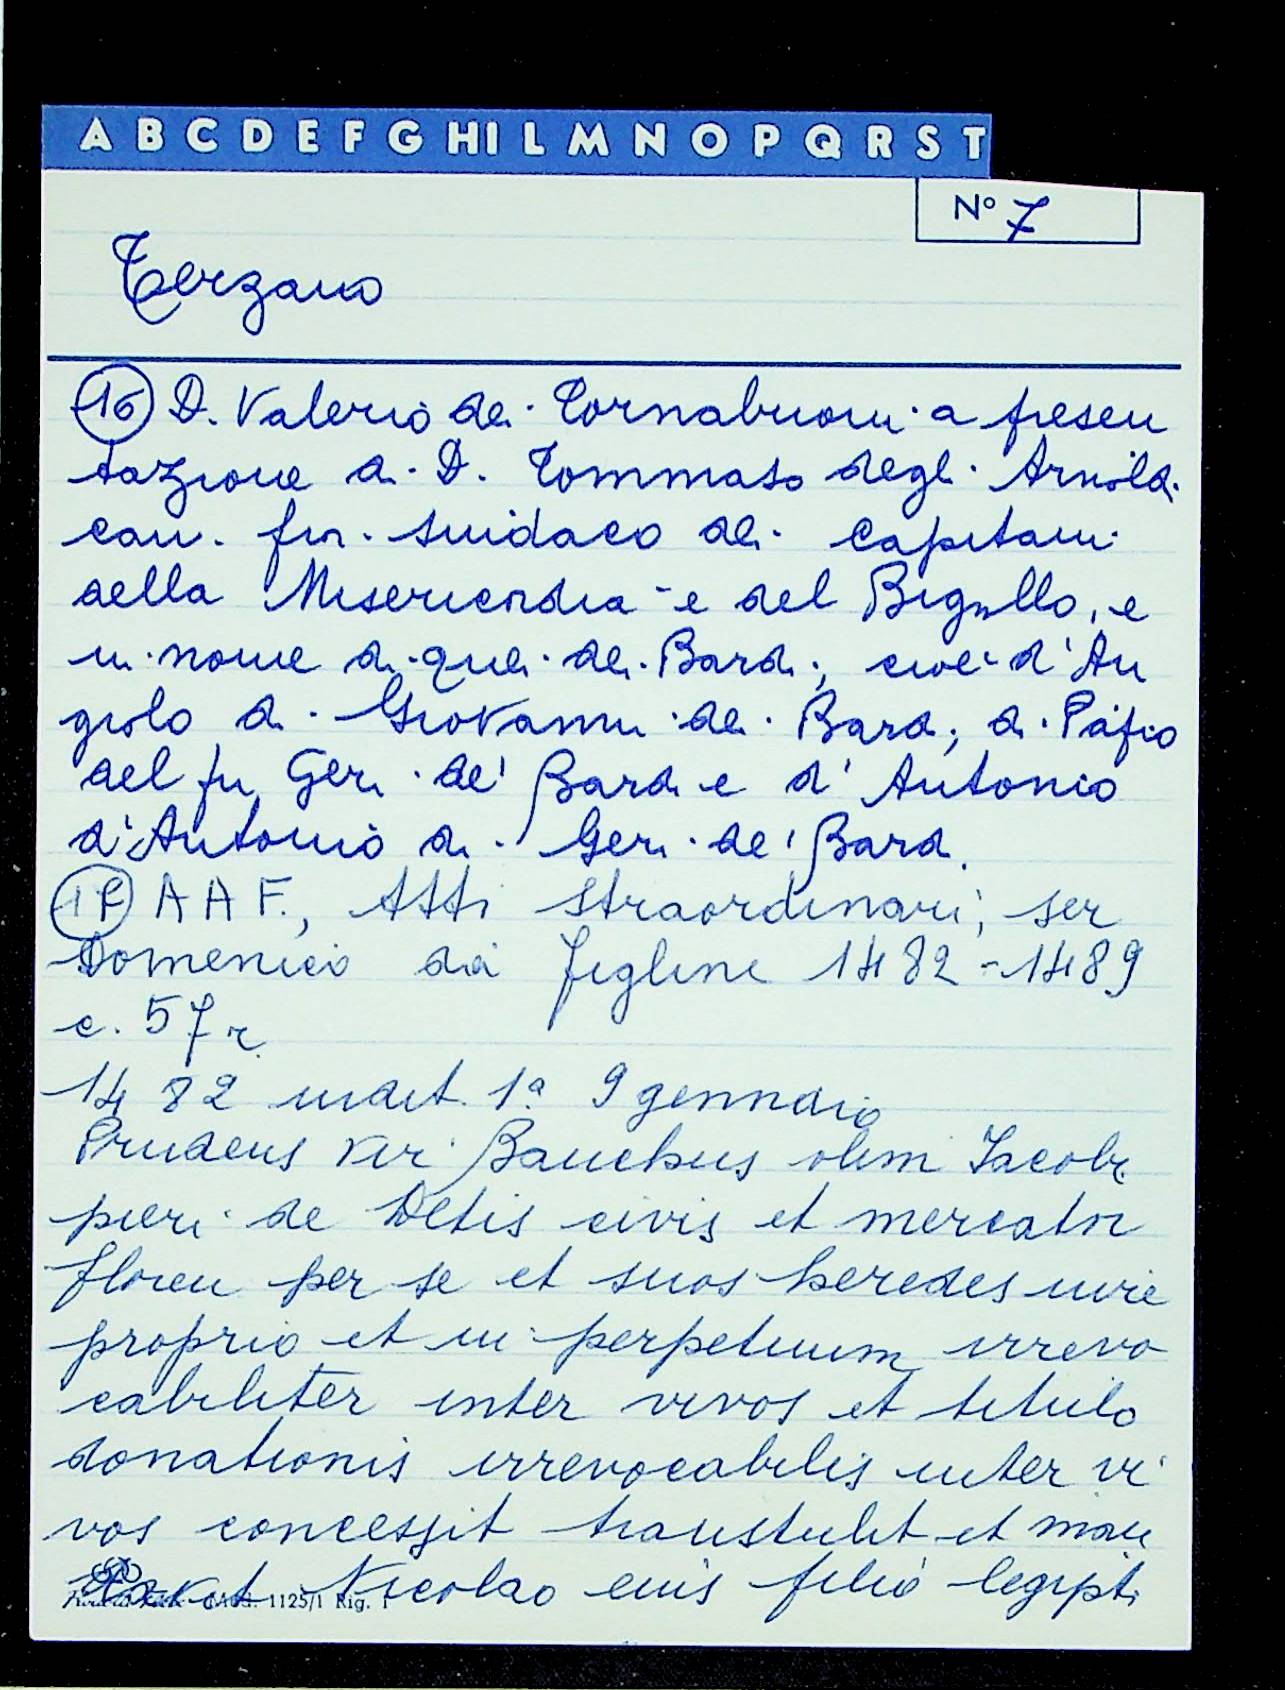 A B C D E F G H I L M N O P Q R S T
N° 7
Terzano
16 D. Valerio dei Tornabuoni a presen
tazione di D. Tommaso degli Arnoldi
can. fior. sindaco dei Capitani
della Misericordia e del Bigallo, e
in nome di quei dei Bardi, cioè d'An
giolo di Giovanni dei Bardi, di Papio
del fu Geri de' Bardi e d'Antonio
d'Antonio di Geri de' Bardi.
17 A A F., Atti straordinari, ser
Domenico da Figline 1482-1489
c. 57 r.
1482 indit. 1ª 9 gennaio
Prudens vir Banchus olim Iacobi
pieri de Detis civis et mercator
floren per se et suos heredes iure
proprio et in perpetuum irrevo
cabiliter inter vivos et titulo
donationis irrevocabilis inter vi
vos concessit transtulit et man
davit Nicolao eius filio legipti
Mod. 1125/1 Rig. 1